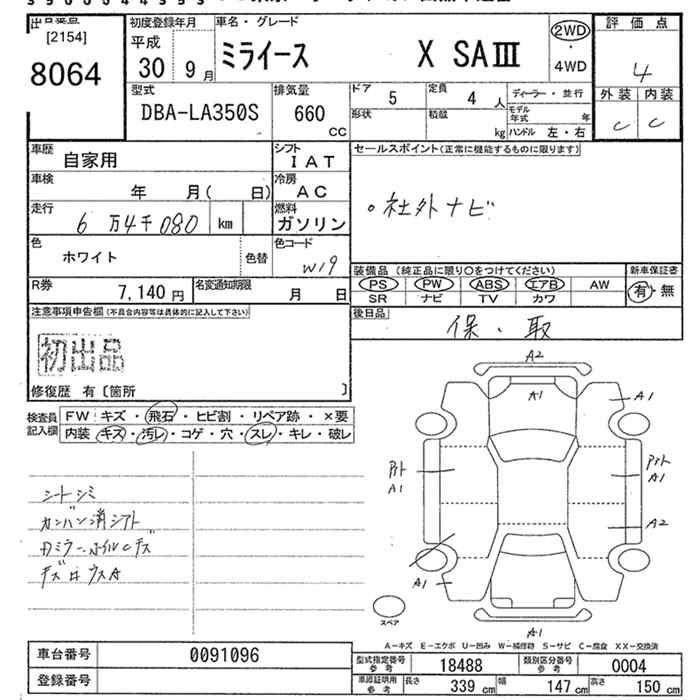 出品要点
[2154]
8064
初度登録年月
平成
30 9月
車名・グレード
ミライース X SAⅢ
2WD
・
4WD
評価点
4
外装 内装
C C
型式
DBA-LA350S
排気量
660
CC
ドア
5
定員
4 人
形状
積載
kg
ディーラー・並行
モデル年式 年
ハンドル 左・右
車歴
自家用
シフト
IAT
セールスポイント(正常に機能するものに限ります)
車検
年 月( 日)
冷房
AC
。社外ナビ
走行
6万4千080 km
燃料
ガソリン
色
ホワイト
色替
色コード
W19
装備品(純正品に限り○をつけてください)
PS PW ABS エアB AW
SR ナビ TV カワ
新車保証書
有・無
R券
7,140円
名変通知期限
月 日
後日品
保・取
注意事項申告欄(不具合内容等は具体的に記入して下さい)
初出品
修復歴 有〔箇所 〕
検査員記入欄
FW キズ・飛石・ヒビ割・リペア跡・×要
内装 キズ・汚レ・コゲ・穴・スレ・キレ・破レ
シートシミ
カンバン消シアト
Rミラー、ホイルCキズ
キズ凹ウスA
A2
A1
A1
A1
A1
A2
A1
A1
スペア
A−キズ E−エクボ U−凹み W−補修跡 S−サビ C−腐食 XX−交換済
車台番号
0091096
登録番号
型式指定番号
参考
18488
類別区分番号
参考
0004
車庫証明用
参考
長さ 339 cm
幅 147 cm
高さ 150 cm